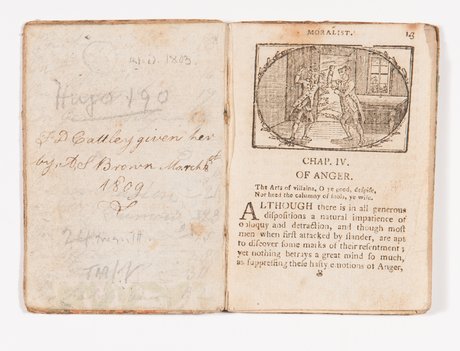 1803.
Hugo 190
J D Cattley given her
by A S Brown March
1809
MORALIST.
CHAP. IV.
OF ANGER.
The Arts of villains, O ye good, deſpiſe,
Nor heed the calumny of fools, ye wiſe.
ALTHOUGH there is in all generous
diſpoſitions a natural impatience of
obloquy and detraction, and though moſt
men when firſt attacked by ſlander, are apt
to diſcover ſome marks of their reſentment;
yet nothing betrays a great mind ſo much,
as ſuppreſſing theſe haſty emotions of Anger,